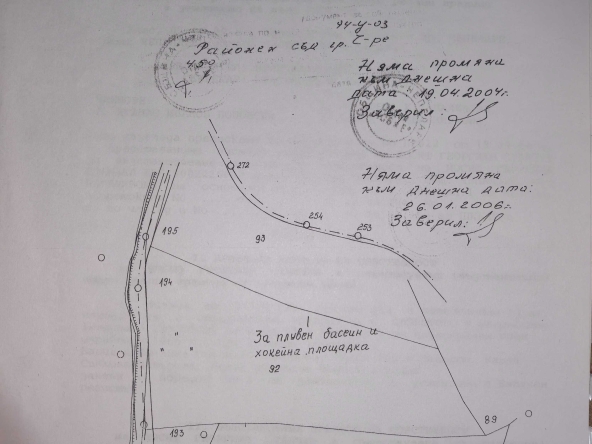 94-У-03
Районен съд гр. С-ре
450
Няма промяна
към днешна
дата: 19.04.2004г.
Заверил:
Няма промяна
към днешна дата:
26.01.2006г.
Заверил:
272
254
253
195
93
194
За плувен басеин и
хокейна площадка
92
193
89